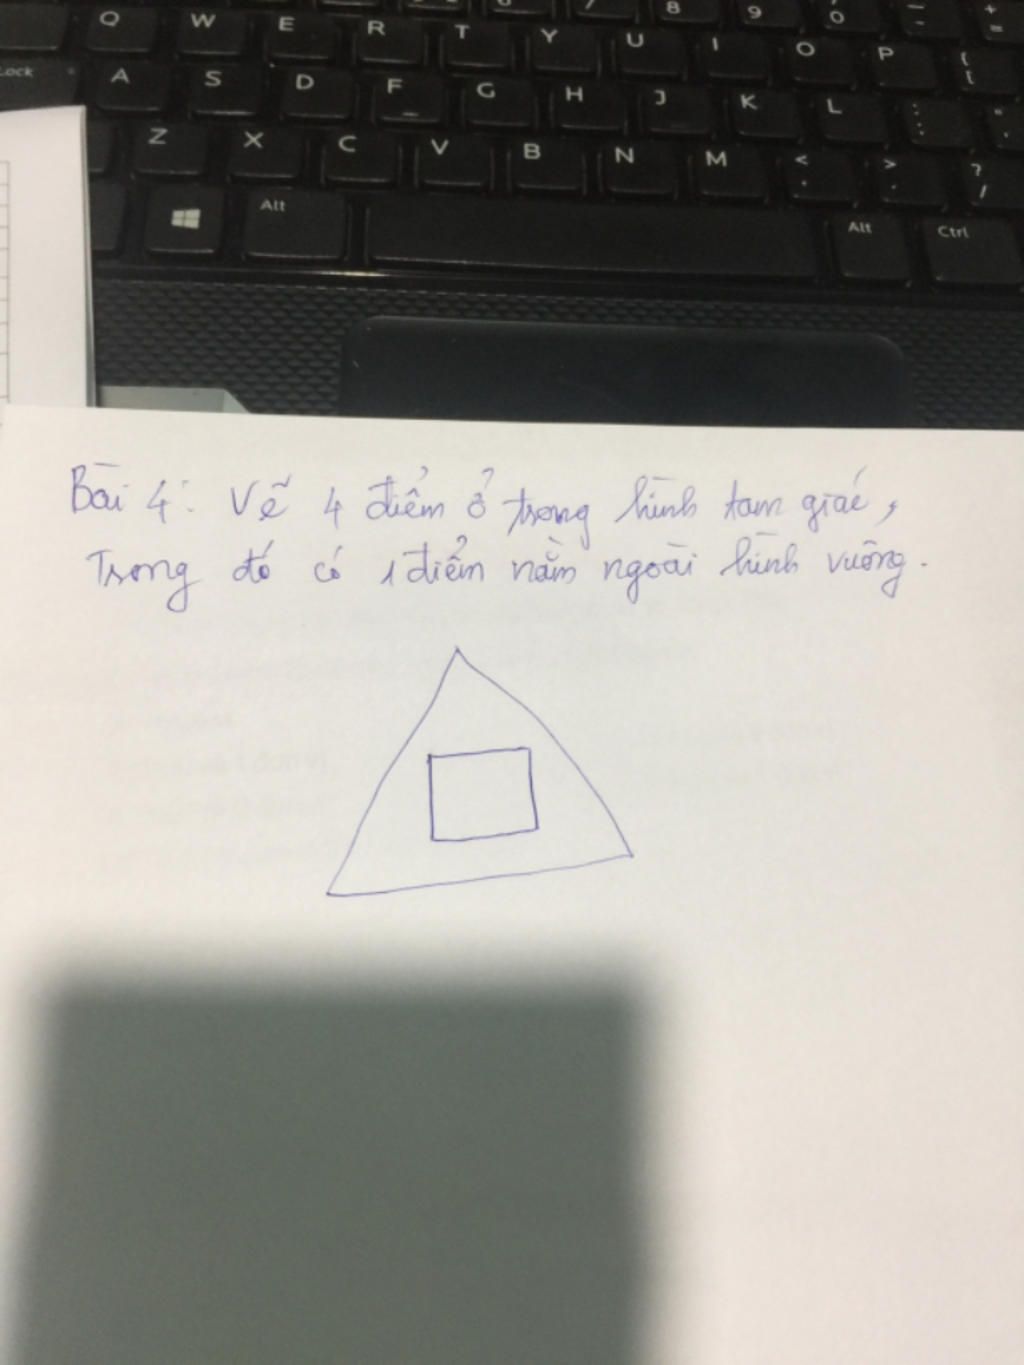 Q W E R T Y U I O P {
[
Lock A S D F G H J K L : "
; '
Z X C V B N M < > ?
, . /
Alt Alt Ctrl
Bài 4: Vẽ 4 điểm ở trong hình tam giác,
Trong đó có 1 điểm nằm ngoài hình vuông.